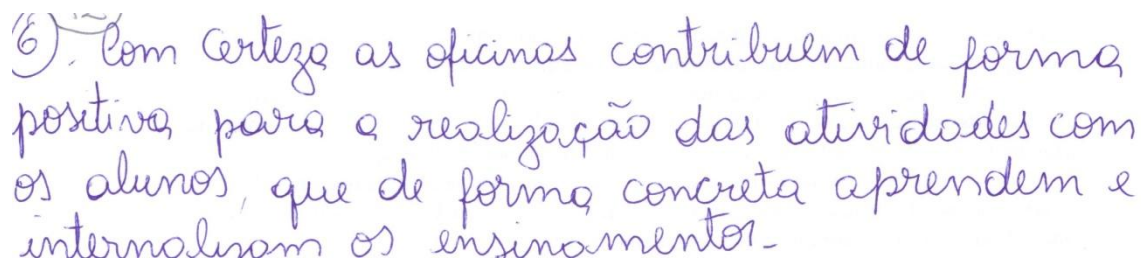 6). Com certeza as oficinas contribuem de forma
positiva para a realização das atividades com
os alunos, que de forma concreta aprendem e
internalizam os ensinamentos.